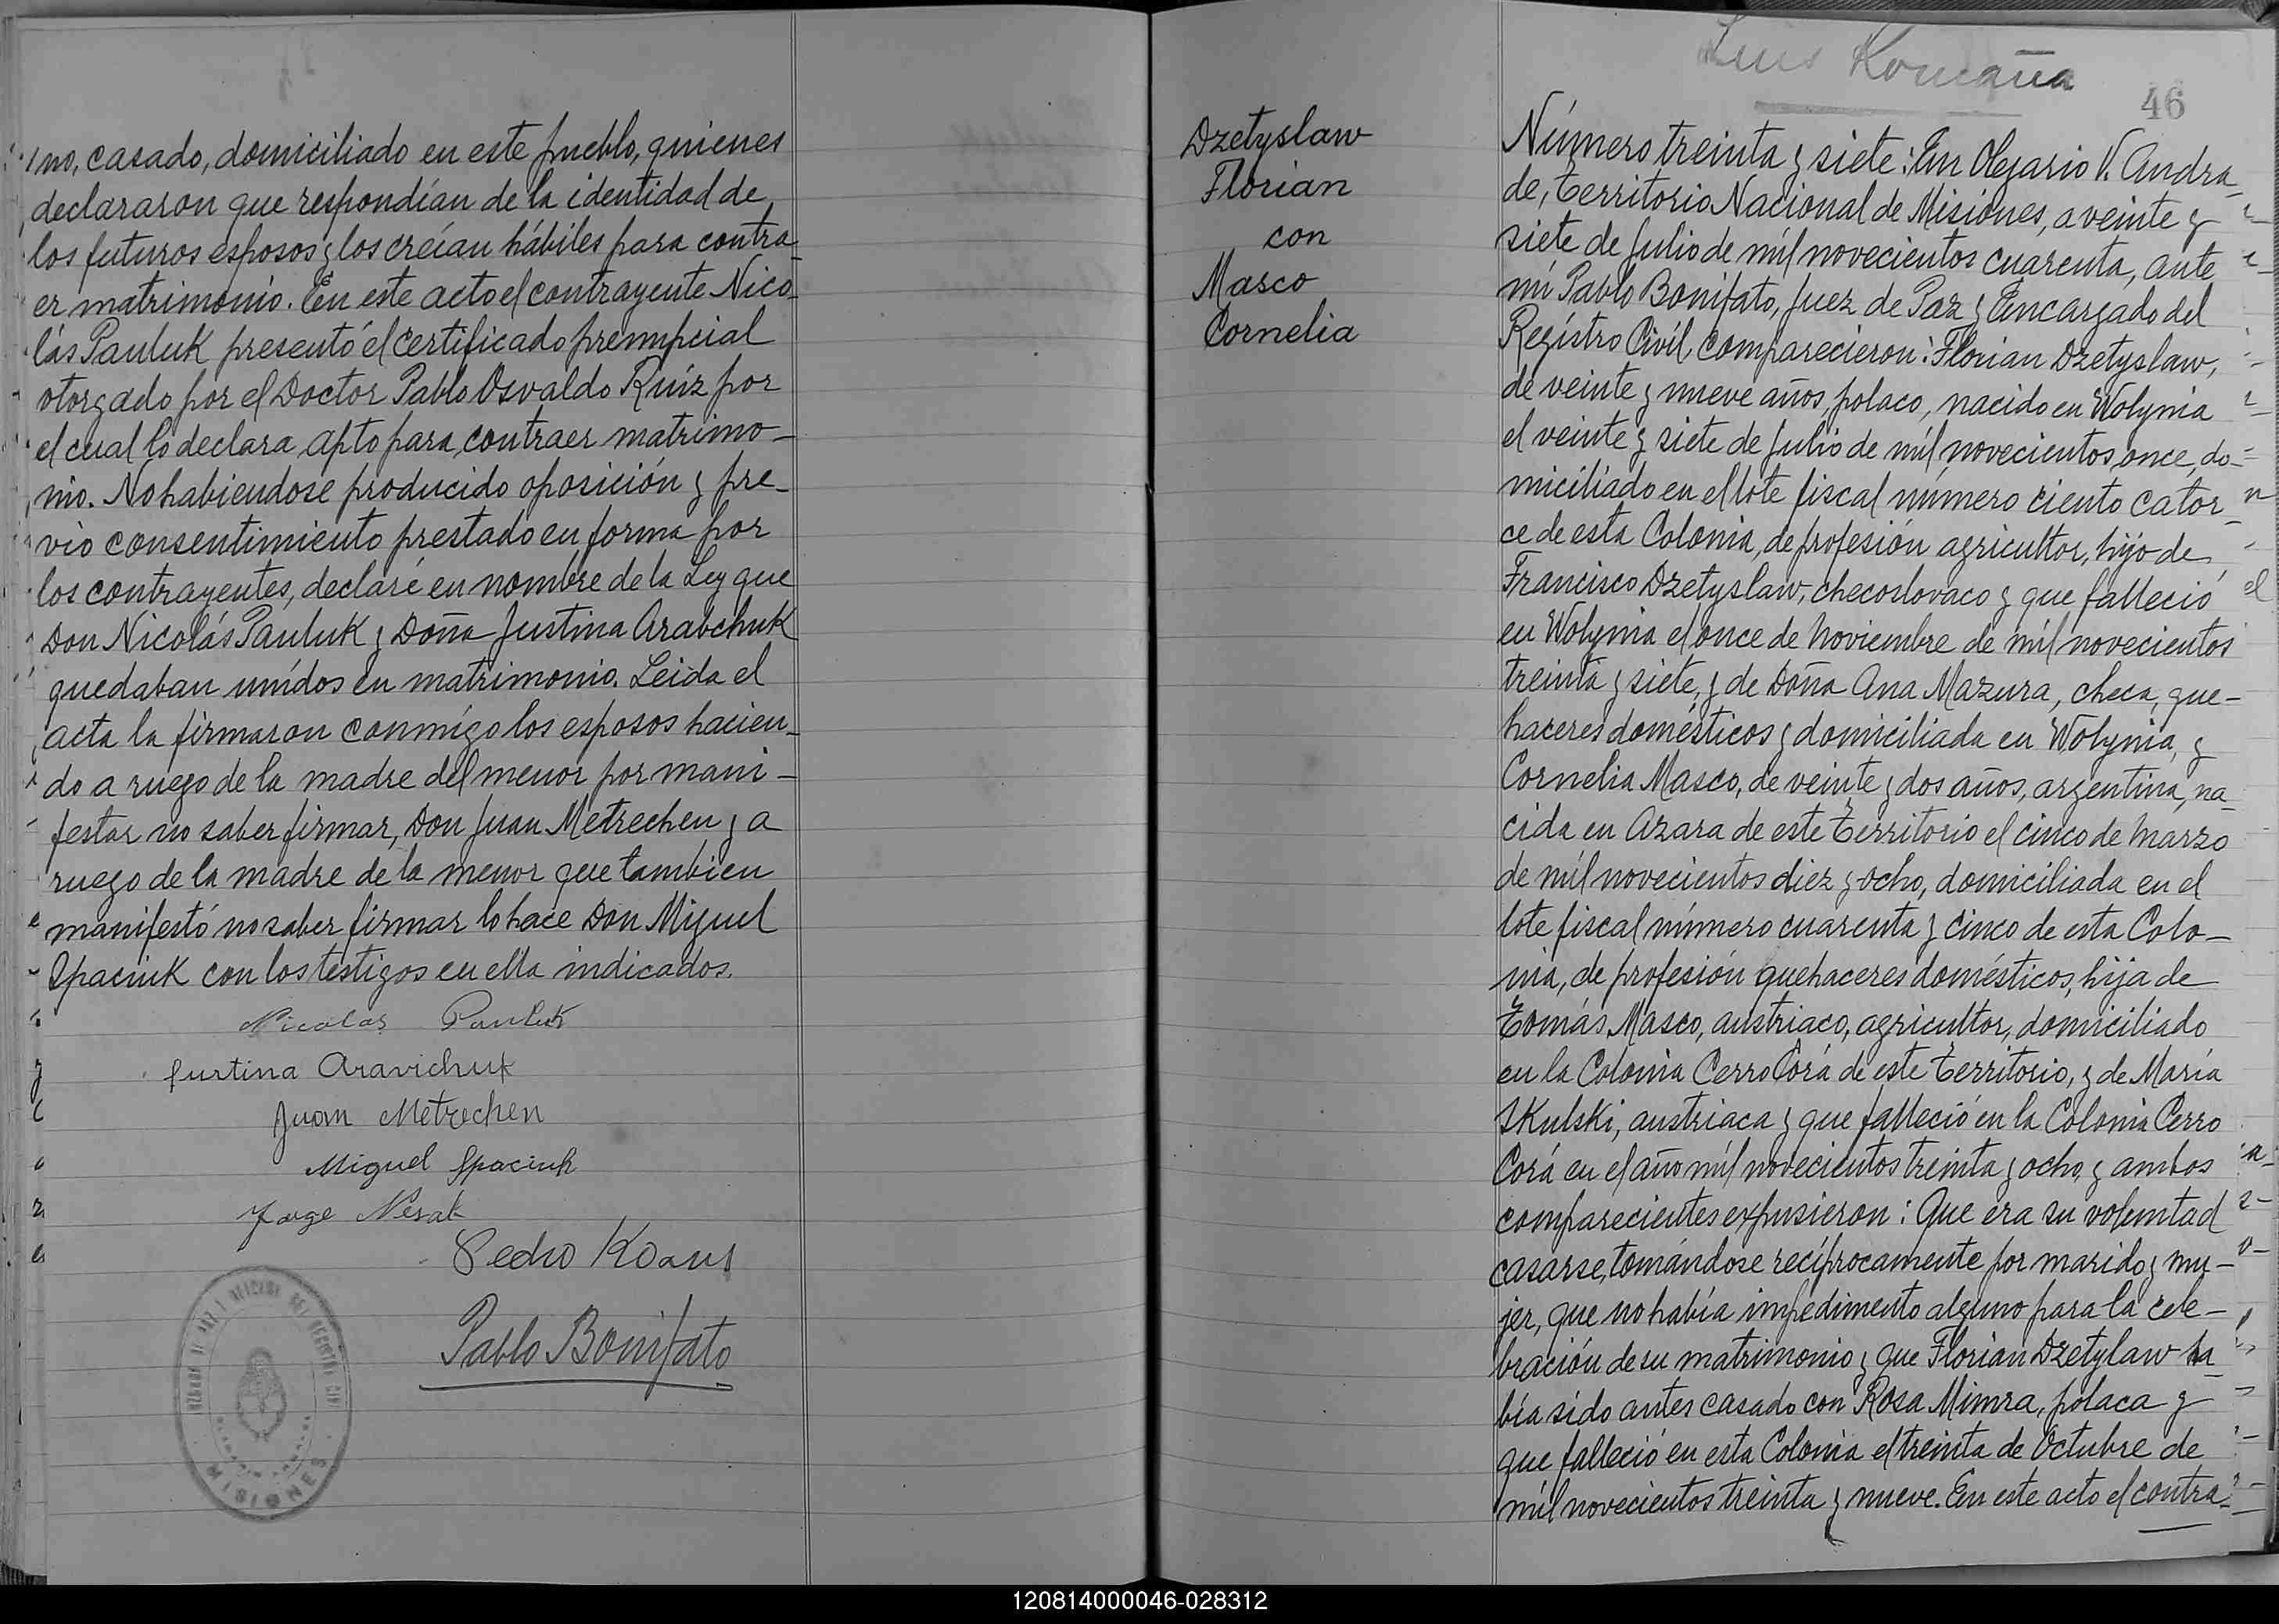 no, casado, domiciliado en este pueblo, quienes
declararon que respondían de la identidad de
los futuros esposos y los creían hábiles para contra-
er matrimonio. En este acto el contrayente Nico-
lás Pauluk presentó el certificado prenupcial
otorgado por el Doctor Pablo Osvaldo Ruíz por
el cual lo declara apto para contraer matrimo-
nio. No habiendose producido oposición y pre-
vio consentimiento prestado en forma por
los contrayentes, declaré en nombre de la Ley que
Don Nicolás Pauluk y Doña Justina Arabchuk
quedaban unídos en matrimonio. Leida el
acta la firmaron conmígo los esposos hacien-
do a ruego de la madre del menor por mani-
festar no saber firmar, Don Juan Metrechen y a
ruego de la madre de la menor que tambien
manifestó no saber firmar lo hace Don Miguel
Spaciuk con los testigos en ella indicados.
Nicolas Pauluk
Justina Aravichuk
Juan Metrechen
Miguel Spaciuk
Jorge Nesak
Pedro Koaus
Pablo Bonifato
MISIONES
Luis Romaña
46
Dzetyslaw
Florian
con
Masco
Cornelia
Número treinta y siete: En Olegario V. Andra-
de, Territorio Nacional de Misiones, a veinte y
siete de Julio de mil novecientos cuarenta, ante
mí Pablo Bonifato, Juez de Paz y Encargado del
Regístro Civíl, comparecieron: Florian Dzetyslaw,
de veinte y nueve años, polaco, nacido en Wolynia
el veinte y siete de Julio de mil novecientos once, do-
miciliado en el lote fiscal número ciento cator-
ce de esta Colonia, de profesión agricultor, hijo de
Francisco Dzetyslaw, checoslovaco y que falleció
en Wolynia el once de Noviembre de mil novecientos
treinta y siete, y de Doña Ana Mazura, checa, que-
haceres domésticos y domiciliada en Wolynia, y
Cornelia Masco, de veinte y dos años, argentina, na-
cida en Azara de este Territorio el cinco de Marzo
de mil novecientos diez y ocho, domiciliada en el
lote fiscal número cuarenta y cinco de esta Colo-
nia, de profesión quehaceres domésticos, hija de
Tomás Masco, austriaco, agricultor, domiciliado
en la Colonia Cerro Corá de este Territorio, y de María
Skulski, austriaca y que falleció en la Colonia Cerro
Corá en el año mil novecientos treinta y ocho, y ambos
comparecientes expusieron: Que era su voluntad
casarse, tomándose recíprocamente por marido y mu-
jer, que no había impedimento alguno para la cele-
bración de su matrimonio y que Florian Dzetylaw ha-
bía sido antes casado con Rosa Mimra, polaca y
que falleció en esta Colonia el treinta de Octubre de
mil novecientos treinta y nueve. En este acto el contra-
120814000046-028312